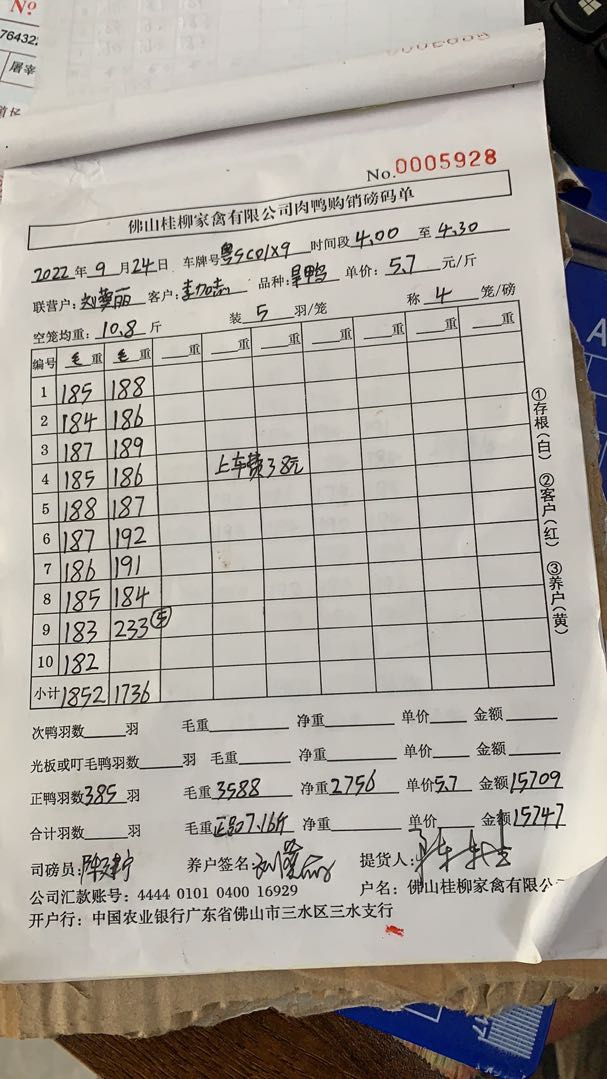 No
76432
屠宰
No.0005928
佛山桂柳家禽有限公司肉鸭购销磅码单
2022年9月24日 车牌号粤GC01X9 时间段4.00至4.30
联营户: 客户: 品种: 单价:5.7元/斤
空笼均重:10.8斤 装5羽/笼 称4笼/磅
编号 毛重 毛重 重 重 重 重 重 重 重
1 185 188
2 184 186
3 187 189
4 185 186 上车费38元
5 188 187
6 187 192
7 186 191
8 185 184
9 183 233⑤
10 182
小计 1852 1736
①存根(白) ②客户(红) ③养户(黄)
次鸭羽数 羽 毛重 净重 单价 金额
光板或叮毛鸭羽数 羽 毛重 净重 单价 金额
正鸭羽数385羽 毛重3588 净重2756 单价5.7 金额15709
合计羽数 羽 毛重 7.16斤 净重 单价 金额15747
司磅员: 养户签名: 提货人:
公司汇款账号: 4444 0101 0400 16929 户名: 佛山桂柳家禽有限公
开户行: 中国农业银行广东省佛山市三水区三水支行